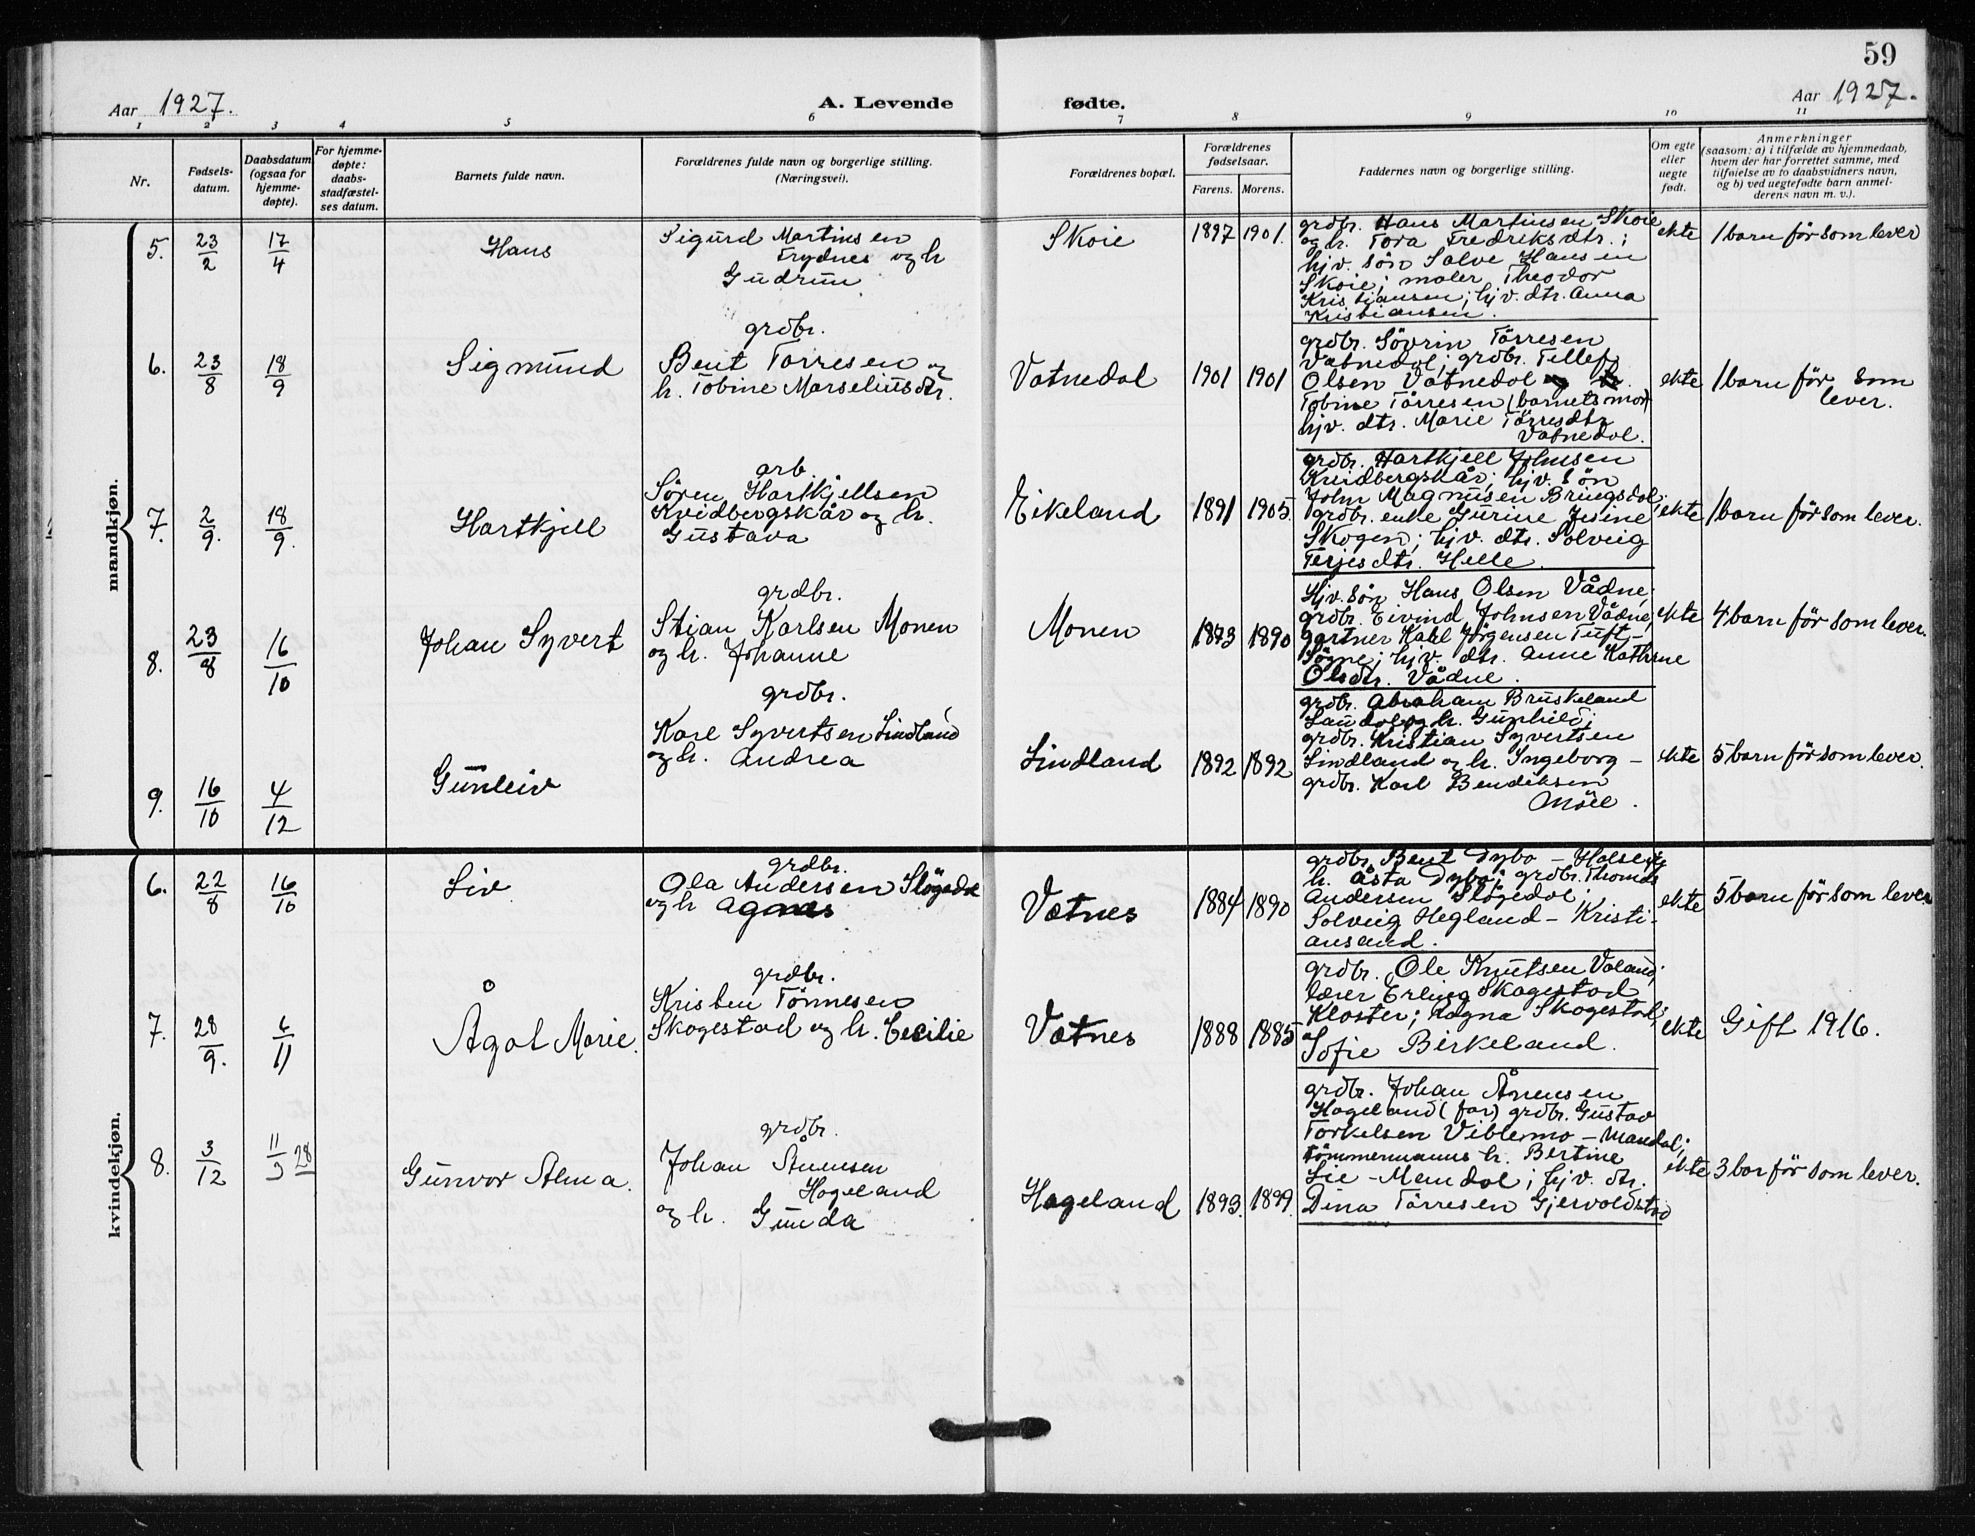 59
Aar 1927.
A. Levende
fødte.
Aar 1927.
1 2 3 4 5 6 7 8 9 10 11
Nr.
Fødsels-
datum.
Daabsdatum
(ogsaa for
hjemme-
døpte).
For hjemme-
døpte:
daabs-
stadfæstel-
ses datum.
Barnets fulde navn.
Forældrenes fulde navn og borgerlige stilling.
(Næringsvei).
Forældrenes bopæl.
Forældrenes
fødselsaar.
Farens. Morens.
Faddernes navn og borgerlige stilling.
Om egte
eller
uegte
født.
Anmerkninger
(saasom: a) i tilfælde av hjemmedaab,
hvem der har forrettet samme, med
tilføielse av to daabsvidners navn,
og b) ved uegtefødte barn anmel-
derens navn m. v.).
mandkjøn.
5. 23/2 17/4 Hans
Sigurd Martinsen
Frydnes og h
Gudrun
Skoie 1897 1901.
grdbr. Hans Martinsen Skoie
og h. Tora Fredriksdtr.;
hjv. søn Salve Hansen
Skoie; maler Theodor
Kristiansen; hjv. dtr. Anna
Kristiansen.
ekte 1 barn før som lever
6. 23/8 18/9 Sigmund
grdbr.
Bent Tørresen og
h. Tobine Marseliusdtr.
Vatnedal 1901 1901
grdbr. Søvrin Tørresen
Vatnedal; grdbr. Tellef
Olsen Vatnedal og h.
Tobine Tørresen (barnets mor)
hjv. dtr. Marie Tørresdtr
Vatnedal.
ekte 1 barn før som
lever.
7. 2/9. 18/9. Hartkjell
arb.
Søren Hartkjellsen
Kvidbergskår og h.
Gustava
Eikeland 1891 1905.
grdbr. Hartkjell Johnsen
Kvidbergskår; hjv. søn
John Magnusen Bringsdal;
grdbr. enke Gurine Jesine
Skogen; hjv. dtr. Solveig
Terjesdtr. Helle.
ekte 1 barn før som lever.
8. 23/8 16/10 Johan Syvert
grdbr.
Stian Karlsen Monen
og h. Johanne
Monen 1873 1890
Hjv. søn Hans Olsen Vådne;
grdbr. Eivind Johnsen Vådne;
gartner Kahl Jørgensen Tuft-
Søgne; hjv. dtr. Anne Kathrine
Olsdtr. Vådne.
ekte 4 barn før som lever.
9. 16/10 4/12 Gunleiv
grdbr.
Karl Syvertsen Lindland
og h. Andrea
Lindland 1892 1892
grdbr. Abraham Bruskeland
Laudal og h. Gunhild;
grdbr. Kristian Syvertsen
Lindland og h. Ingeborg -
grdbr. Karl Bendiksen
Møll.
ekte 5 barn før som lever.
kvindekjøn.
6. 22/8 16/10 Liv
grdbr.
Ola Andersen Sløgedal
og h Agnes
Vatnes 1884 1890
grdbr. Bent Dybo - Holseng
h. Åsta Dybo; grdbr. Thomas
Andersen Sløgedal;
Solveig Hegland - Kristi-
ansand.
ekte 5 barn før som lever
7. 28/9. 6/11 Ågot Marie.
grdbr.
Kristen Tønnesen
Skogestad og h. Cecilie
Vatnes 1888 1885
grdbr. Ole Knutsen Voland;
lærer Erling Skagestad
Kloster; Ragna Skogestad;
Sofie Birkeland.
ekte Gift 1916.
8. 3/12 11/3 28 Gunvor Alma.
grdbr.
Johan Ånensen
Hageland
og h. Gunda
Hageland 1893. 1899.
grdbr. Johan Ånensen
Hageland (far) grdbr. Gustav
Torkelsen Viblemo - Mandal;
tømmermanns h. Bertine
Lie - Mandal; hjv. dtr.
Dina Tørresen Gjervoldstad
ekte 3 bar før som lever.